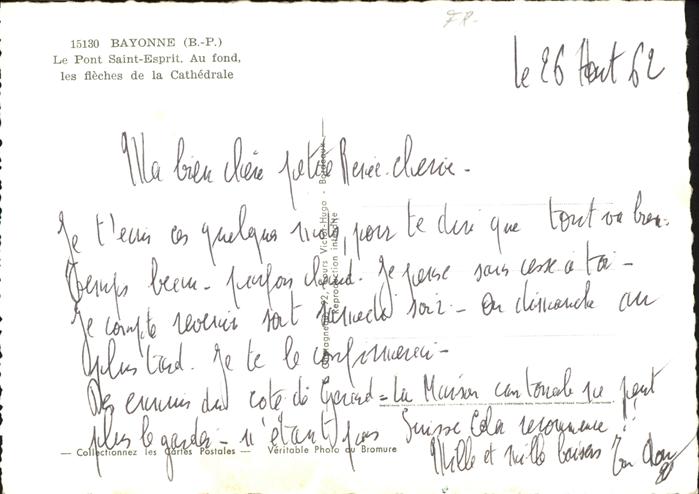 15130 BAYONNE (B.-P.)
Le Pont Saint-Esprit. Au fond,
les flèches de la Cathédrale
le 26 Aout 62
Ma bien chère petite Renée cherie -
Je t'ecris ces quelques mots, pour te dire que tout va bien.
Temps beau - parfois chaud. Je pense sans cesse à toi -
Je compte revenir soit samedi soir - ou dimanche au
plus tard. Je te le confirmerai -
Des ennuis du coté de Gerard = La Maison cantonale ne peut
plus le garder - n'étant pas Suisse Cela recommence !!
Mille et mille baisers Ton
— Collectionnez les Cartes Postales — Véritable Photo au Bromure
Cours Victor-Hugo - Bordeaux
Reproduction interdite